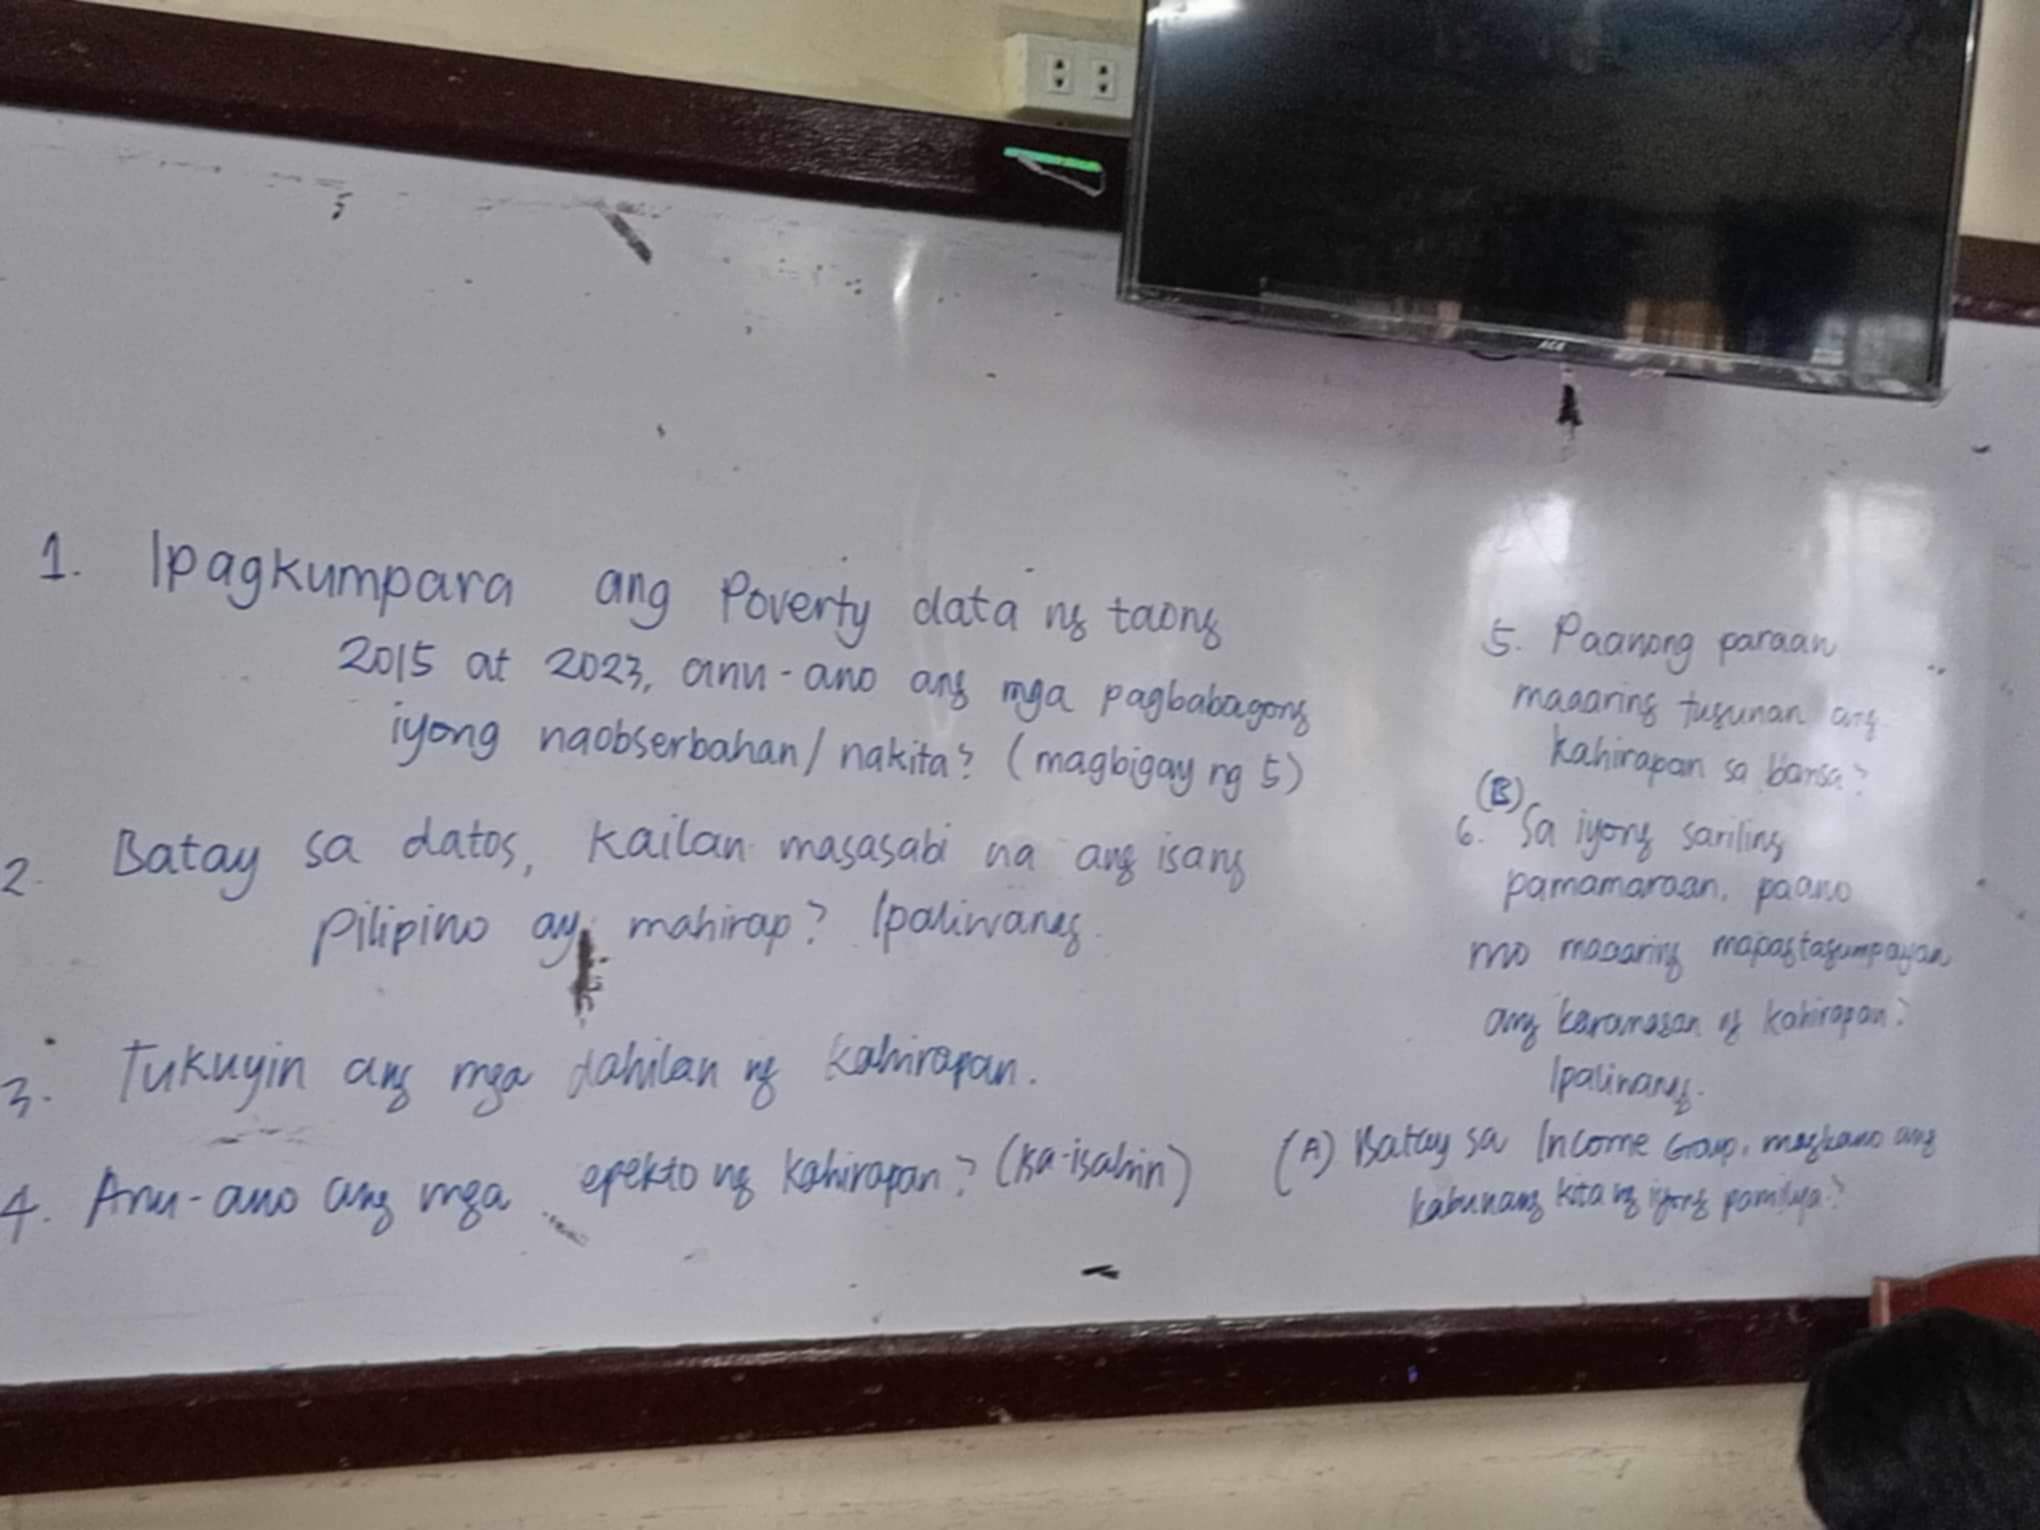 1. Ipagkumpara ang Poverty data ng taong
2015 at 2023, anu-ano ang mga pagbabagong
iyong naobserbahan/nakita? (magbigay ng 5)
2. Batay sa datos, kailan masasabi na ang isang
pilipino ay mahirap? Ipaliwanag.
3. Tukuyin ang mga dahilan ng kahirapan.
4. Anu-ano ang mga epekto ng kahirapan? (isa-isahin)
5. Paanong paraan
maaaring tugunan ang
kahirapan sa bansa?
(B)
6. Sa iyong sariling
pamamaraan, paano
mo maaaring mapagtagumpayan
ang karanasan ng kahirapan?
Ipaliwanag.
(A) Batay sa Income Group, magkano ang
kabuuang kita ng iyong pamilya?